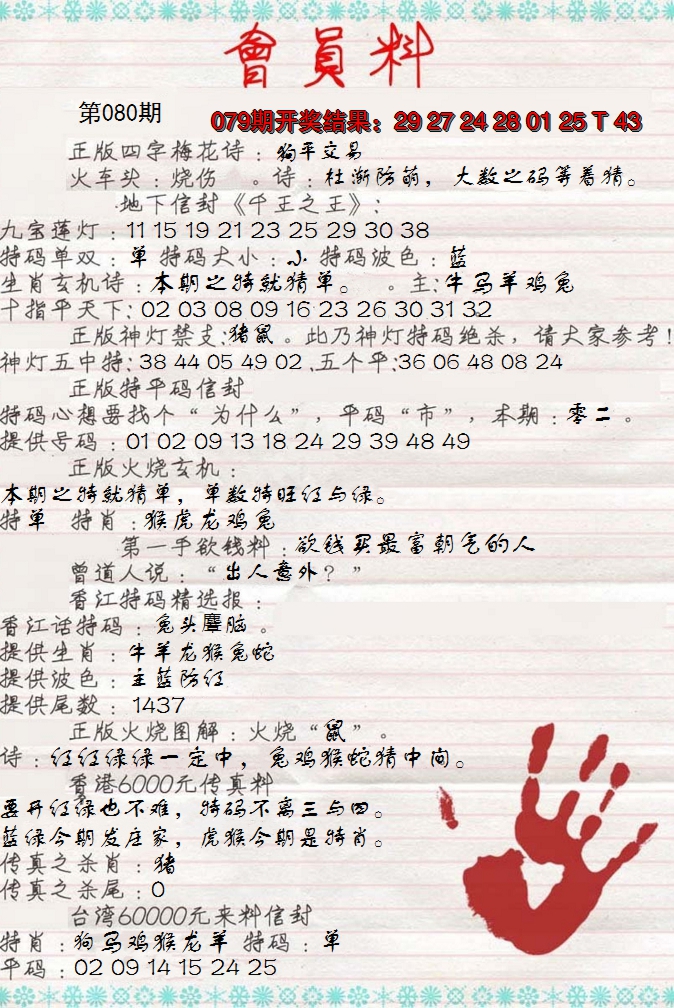 會員料
第080期
079期开奖结果：29 27 24 28 01 25 T 43
正版四字梅花诗：狗平交易
火车头：烧伤 。诗：杜渐防萌，大数之码等着猜。
地下信封《千王之王》：
九宝莲灯：11 15 19 21 23 25 29 30 38
特码单双：单 特码大小：小 特码波色：蓝
生肖玄机诗：本期之特就猜单。 。主:牛马羊鸡兔
十指平天下:02 03 08 09 16 23 26 30 31 32
正版神灯禁支:猪鼠。此乃神灯特码绝杀，请大家参考!
神灯五中特:38 44 05 49 02 .五个平:36 06 48 08 24
正版特平码信封
特码心想要找个“为什么”，平码“市”，本期：零二。
提供号码：01 02 09 13 18 24 29 39 48 49
正版火烧玄机：
本期之特就猜单，单数特旺红与绿。
特单 特肖：猴虎龙鸡兔
第一手欲钱料：欲钱买最富朝气的人
曾道人说：“出人意外？”
香江特码精选报：
香江话特码：兔头麞脑。
提供生肖：牛羊龙猴兔蛇
提供波色：主蓝防红
提供尾数：1437
正版火烧图解：火烧“鼠”。
诗：红红绿绿一定中，兔鸡猴蛇猜中间。
香港6000元传真料
要开红绿也不难，特码不离三与四。
蓝绿今期发庄家，虎猴今期是特肖。
传真之杀肖：猪
传真之杀尾：0
台湾60000元来料信封
特肖：狗马鸡猴龙羊 特码：单
平码：02 09 14 15 24 25